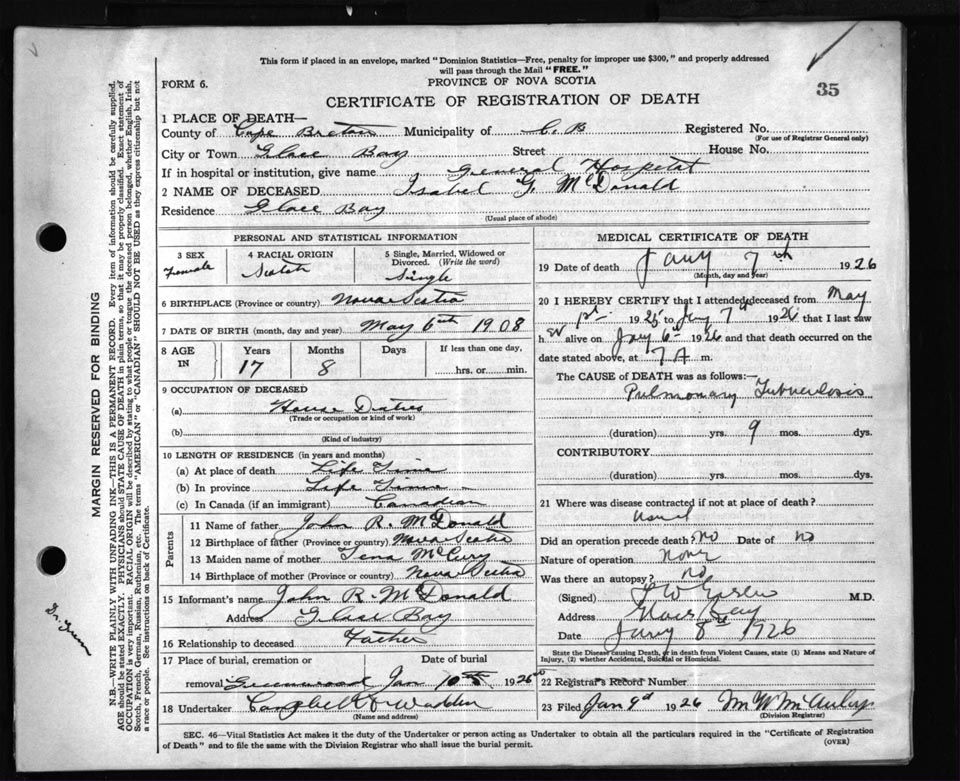 This form if placed in an envelope, marked "Dominion Statistics—Free, penalty for improper use $300," and properly addressed
will pass through the Mail "FREE."
FORM 6.
PROVINCE OF NOVA SCOTIA
35
CERTIFICATE OF REGISTRATION OF DEATH
1 PLACE OF DEATH—
County of Cape Breton Municipality of C. B Registered No.
(For use of Registrar General only)
City or Town Glace Bay Street House No.
If in hospital or institution, give name General Hospital
2 NAME OF DECEASED Isabel G. McDonald
Residence Glace Bay
(Usual place of abode)
PERSONAL AND STATISTICAL INFORMATION
3 SEX
Female
4 RACIAL ORIGIN
Scotch
5 Single, Married, Widowed or
Divorced. (Write the word)
Single
6 BIRTHPLACE (Province or country) Nova Scotia
7 DATE OF BIRTH (month, day and year) May 6th 1908
8 AGE IN
Years Months Days If less than one day,
17 8 hrs. or min.
9 OCCUPATION OF DECEASED
(a) House Duties
(Trade or occupation or kind of work)
(b)
(Kind of industry)
10 LENGTH OF RESIDENCE (in years and months)
(a) At place of death Life Time
(b) In province Life Time
(c) In Canada (if an immigrant) Canadian
Parents
11 Name of father John R. McDonald
12 Birthplace of father (Province or country) Nova Scotia
13 Maiden name of mother Tena
14 Birthplace of mother (Province or country) Nova Scotia
15 Informant's name John R. McDonald
Address Glace Bay
16 Relationship to deceased Father
17 Place of burial, cremation or Date of burial
removal Greenwood Jan 10th 1926
18 Undertaker
(Name and address)
MEDICAL CERTIFICATE OF DEATH
19 Date of death Jany 7th 1926
(Month, day and year)
20 I HEREBY CERTIFY that I attended deceased from May
1st 1925 to Jany 7th 1926 that I last saw
her alive on Jany 6th 1926 and that death occurred on the
date stated above, at 7 A m.
The CAUSE of DEATH was as follows:—
Pulmonary Tuberculosis
(duration) yrs. 9 mos. dys.
CONTRIBUTORY
(duration) yrs. mos. dys.
21 Where was disease contracted if not at place of death?
Did an operation precede death? No Date of No
Nature of operation None
Was there an autopsy? No
(Signed) M.D.
Address Glace Bay
Date Jany 8th 1926
State the Disease causing Death, or in death from Violent Causes, state (1) Means and Nature of
Injury, (2) whether Accidental, Suicidal or Homicidal.
22 Registrar's Record Number
23 Filed Jan 9th 1926
(Division Registrar)
SEC. 46—Vital Statistics Act makes it the duty of the Undertaker or person acting as Undertaker to obtain all the particulars required in the "Certificate of Registration
of Death" and to file the same with the Division Registrar who shall issue the burial permit.
(OVER)
MARGIN RESERVED FOR BINDING
N.B.—WRITE PLAINLY WITH UNFADING INK—THIS IS A PERMANENT RECORD. Every item of information should be carefully supplied.
AGE should be stated EXACTLY. PHYSICIANS should STATE CAUSE OF DEATH in plain terms, so that it may be properly classified. Exact statement of
OCCUPATION is very important. RACIAL ORIGIN will be described by stating to what people or tongue the deceased person belonged, whether English, Irish,
Scotch, French, German, Russian, Ruthenian, etc. The terms "AMERICAN" or "CANADIAN" SHOULD NOT BE USED as they express citizenship but not
a race or people. See instructions on back of Certificate.